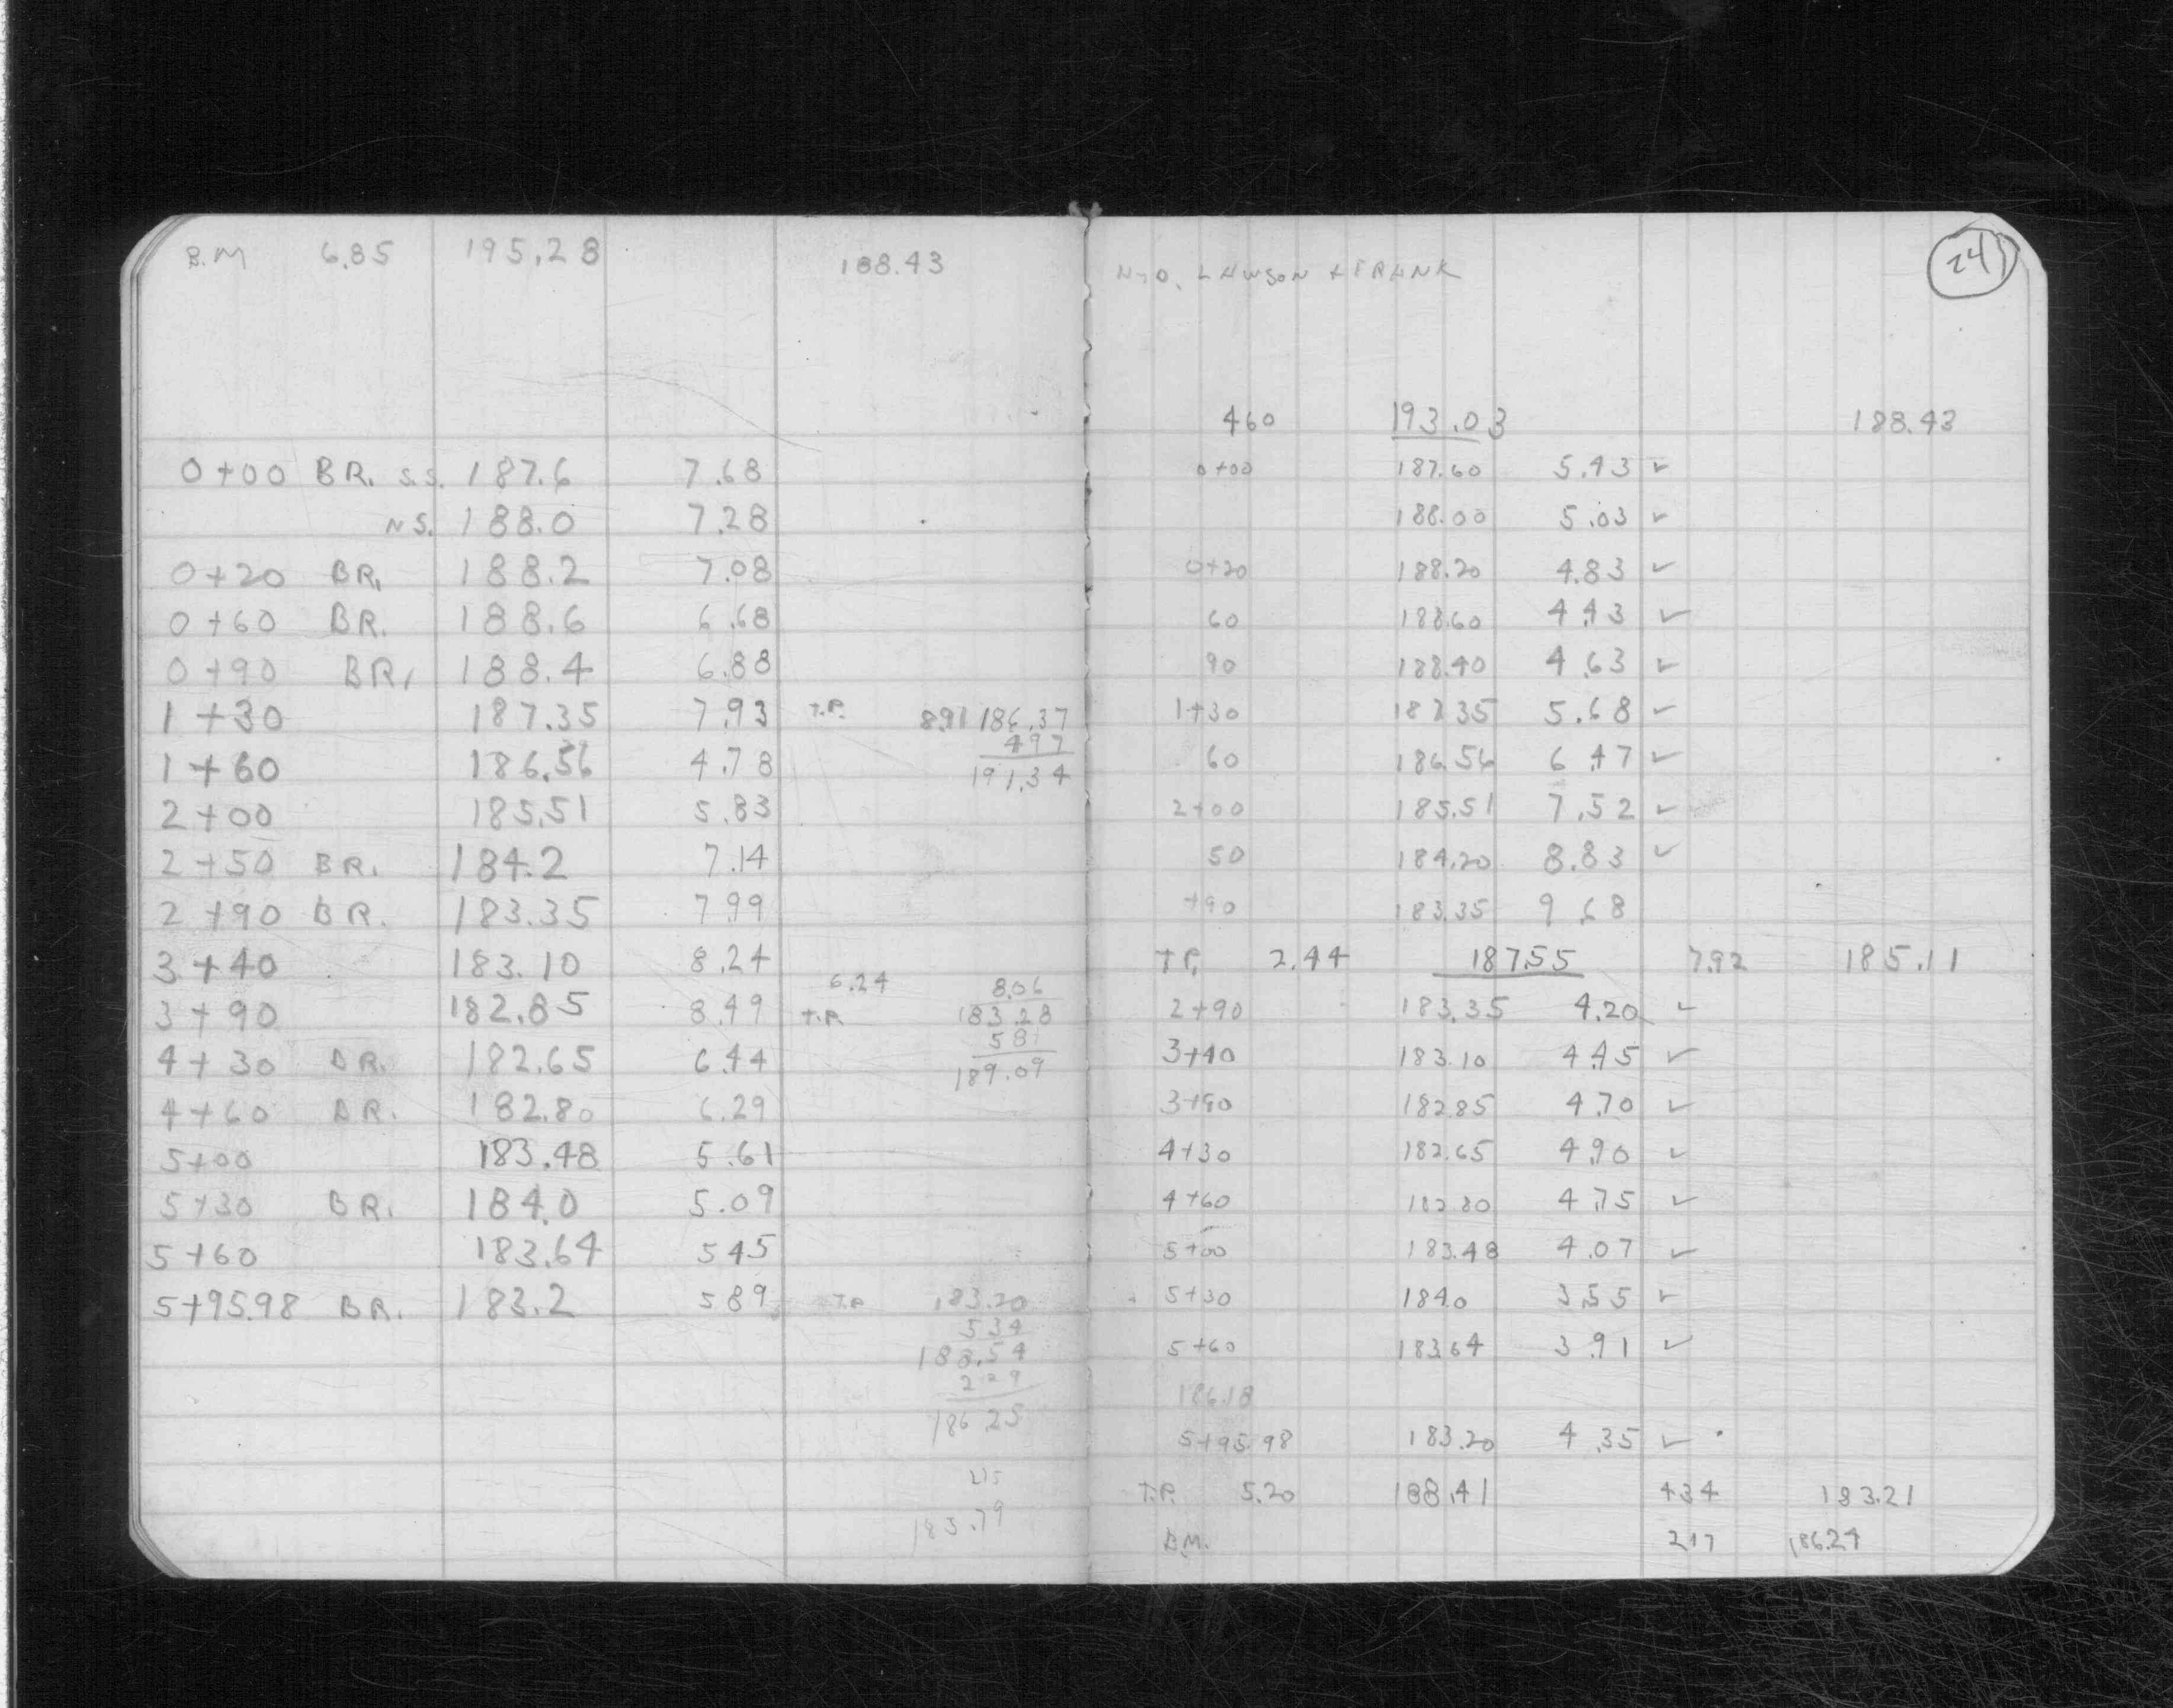 B.M 6.85 195.28 188.43
0+00 BR. S.S. 187.6 7.68
N.S. 188.0 7.28
0+20 BR. 188.2 7.08
0+60 BR. 188.6 6.68
0+90 BR. 188.4 6.88
1+30 187.35 7.93 T.P. 8.91 186.37
4 97
1+60 186.56 4.78 191.34
2+00 185.51 5.83
2+50 BR. 184.2 7.14
2+90 BR. 183.35 7.99
3+40 183.10 8.24
6.24 8.06
3+90 182.85 8.49 T.P. 183.28
5 81
4+30 BR. 182.65 6.44 189.09
4+60 BR. 182.80 6.29
5+00 183.48 5.61
5+30 BR. 184.0 5.09
5+60 183.64 5 45
5+95.98 BR. 183.2 5 89 T.P. 183.20
5 34
188.54
2 29
186.25
215
183.79
24
LAWSON + FRANK
4 60 193.03 188.43
0+00 187.60 5.43 ✓
188.00 5.03 ✓
0+20 188.20 4.83 ✓
60 188.60 4 43 ✓
90 188.40 4.63 ✓
1+30 187.35 5.68 ✓
60 186.56 6 47 ✓
2+00 185.51 7.52 ✓
50 184.20 8.83 ✓
+90 183.35 9 68
T.P. 2.44 187.55 7.92 185.11
2+90 183.35 4.20 ✓
3+40 183.10 4.45 ✓
3+90 182.85 4.70 ✓
4+30 182.65 4.90 ✓
4+60 182.80 4.75 ✓
5+00 183.48 4.07 ✓
5+30 184.0 3.55 ✓
5+60 183.64 3.91 ✓
186.18
5+95.98 183.20 4.35 ✓
T.P. 5.20 188.41 4 34 183.21
B.M. 2 17 186.24